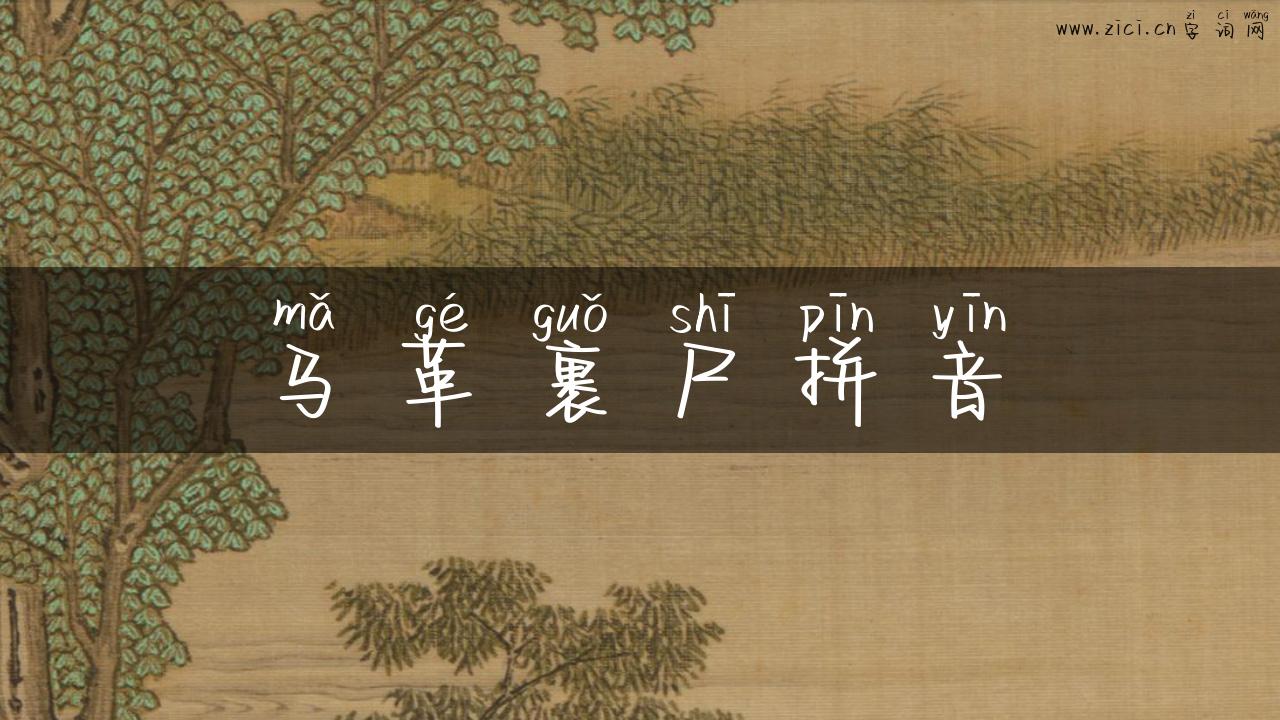 zì cí wǎng
www.zici.cn字词网
mǎ gé guǒ shī pīn yīn
马革裹尸拼音